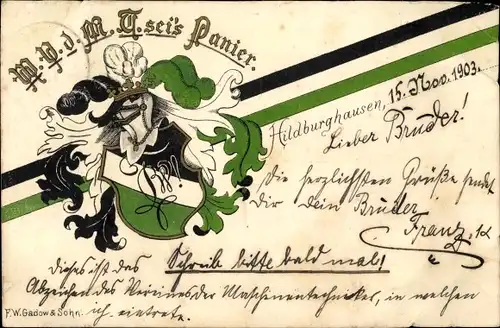 W. V. d. M. T. sei's Panier.
Hildburghausen, 15. Nov. 1903.
Lieber Bruder!
Die herzlichsten Grüße sendet
Dir Dein Bruder
Franz
Schreib bitte bald mal!
Dieses ist das
Abzeichen des Vereines der Maschinentechniker, in welchen
ich eintrete.
F.W. Gadow & Sohn.